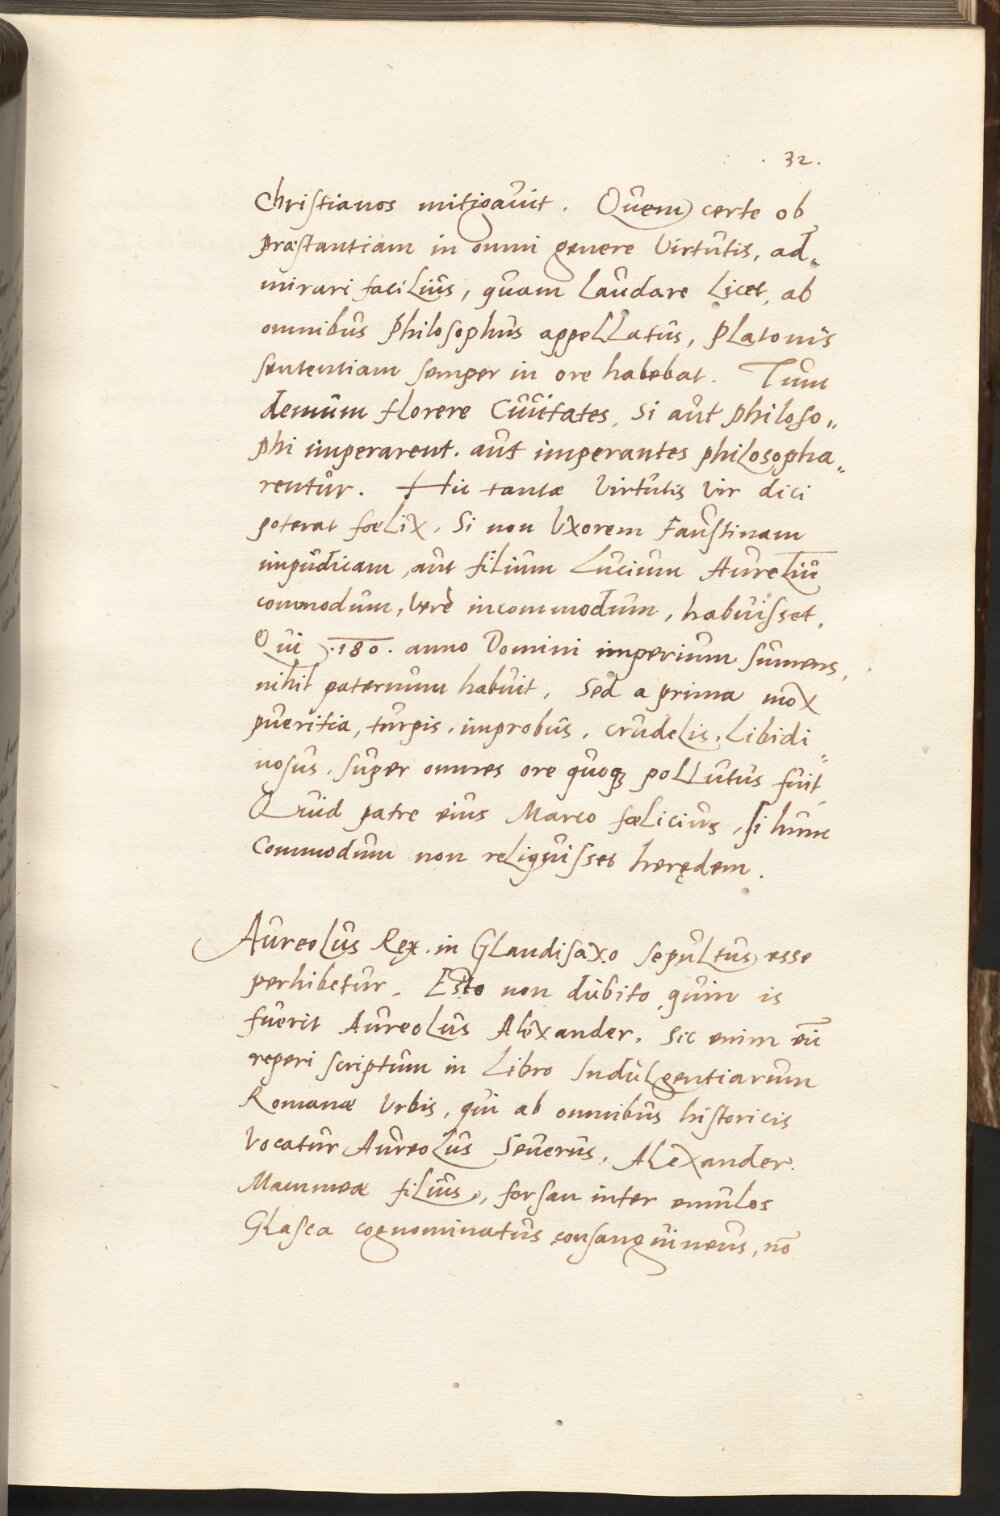 . 32 .
Christianos mitigavit. Quem certe ob
præstantiam in omni genere Virtutis, ad„
mirari facilius, quam laudare licet, ab
omnibus Philosophus appellatus, Platonis
sententiam semper in ore habebat. Tum
demum florere Civitates, si aut philoso„
phi imperarent. aut imperantes philosopha„
rentur. Hic tantæ Virtutis vir dici
poterat fœlix, Si non Vxorem Faustinam
impudicam, aut filium Lucium Aureliū
commodum, verè incommodum, habuisset.
Qui .180. anno Domini imperium sumens,
nihil paternum habuit, sed a prima mox
pueritia, turpis, improbus, crudelis, Libidi„
nosus, super omnes ore quoqꝫ pollutus fuit
Quid patre eius Marco fœlicius, si hunc
Commodum non reliquisset herędem.
Aureolus Rex. in Glandisaxo sepultus esse
perhibetur. Esto non dubito, quin is
fuerit Aureolus Alexander. Sic enim eū
reperi scriptum in Libro Indulgentiarum
Romanæ Vrbis, qui ab omnibus historicis
Vocatur Aureolus Seuerus, Alexander.
Mammeæ filius, forsan inter emulos
Glasca cognominatus consanguineus, nō